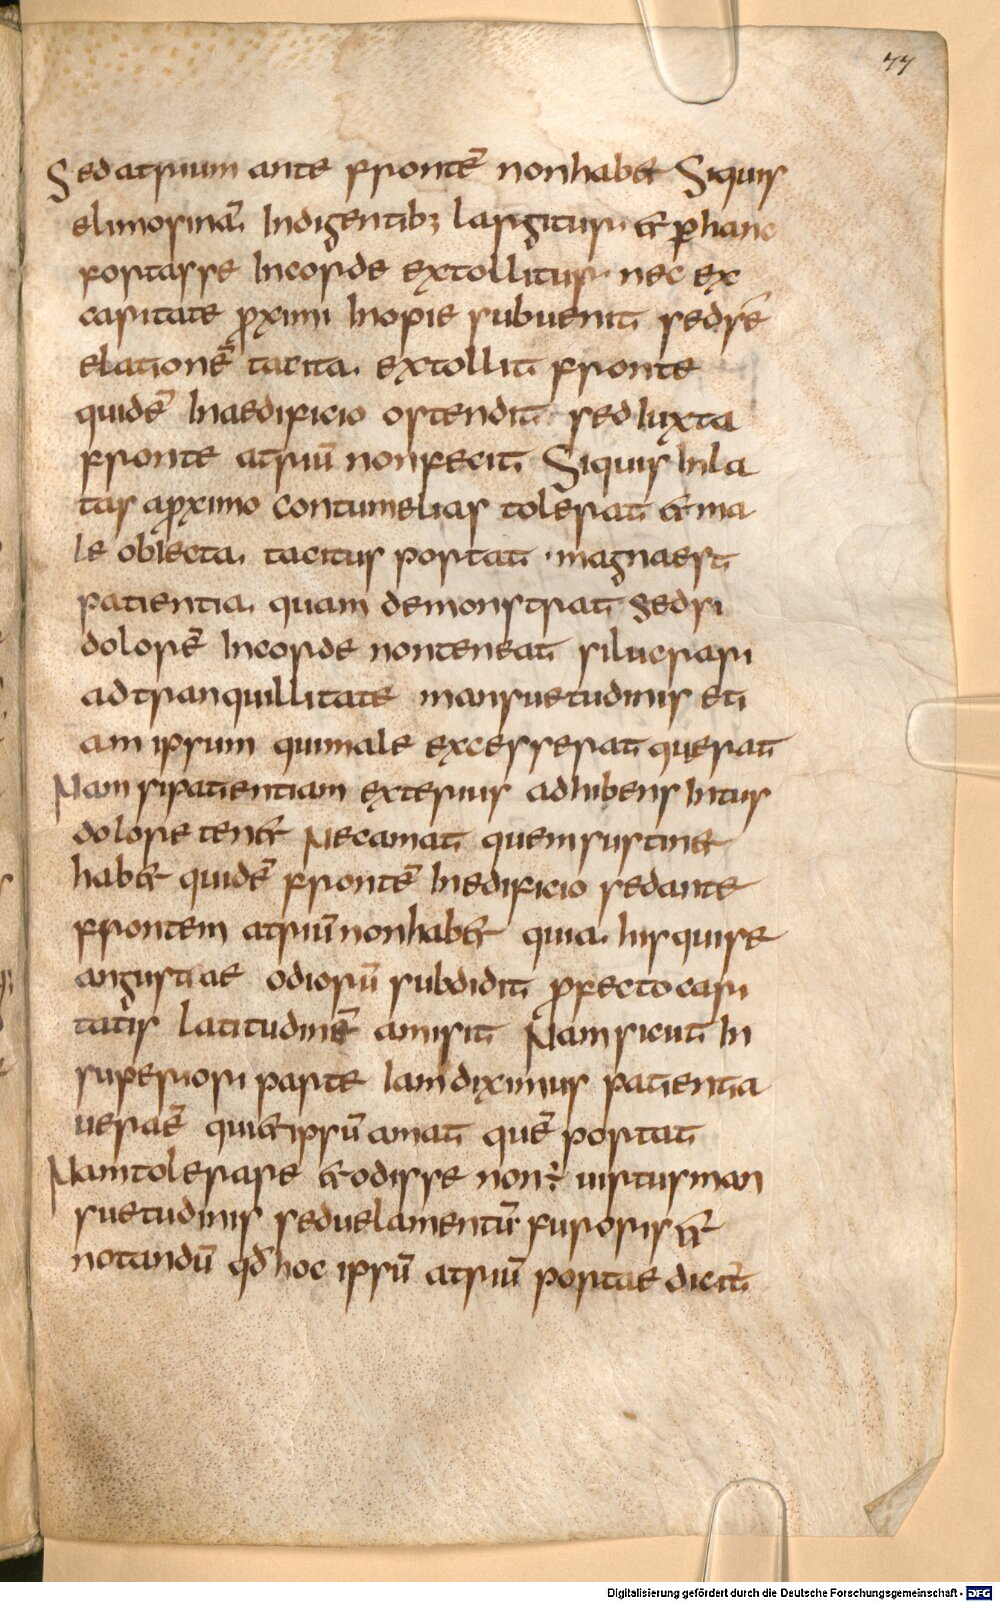 77
Sed atrium ante frontē non habet Siquis
elimosinā indigentib; largitur· et p hanc
fortasse in corde extollitur· nec ex
caritate proximi inopie subuenit sed sē
elationē tacita extollit fronte
quidē in aedificio ostendit sed iuxta
fronte atriū non fecit Siquis inla
tas a proximo contumelias tolerat et ma
le obiecta tacitus portat · magna est
patientia quam demonstrat Sed si
dolorē in corde non teneat si lucrari
ad tranquillitate mansuetudinis eti
am ipsum qui male excesserat querat
Nam si patientiam exterius adhibens intus
dolore tenet Nec amat quem sustinet
habet quidē frontē in edificio sed ante
frontem atriū non habet quia his qui se
angustiae odiorū subdidit profecto cari
tatis latitudinē amisit Nam sicut in
superiori parte iam diximus patientia
uera ē qui et ipsū amat quē portat
Nam tolerare et odisse non ÷ uirtus man
suetudinis sed uelamentū furoris Et
notandū qđ hoc ipsū atriū portae dicit
Digitalisierung gefördert durch die Deutsche Forschungsgemeinschaft - DFG